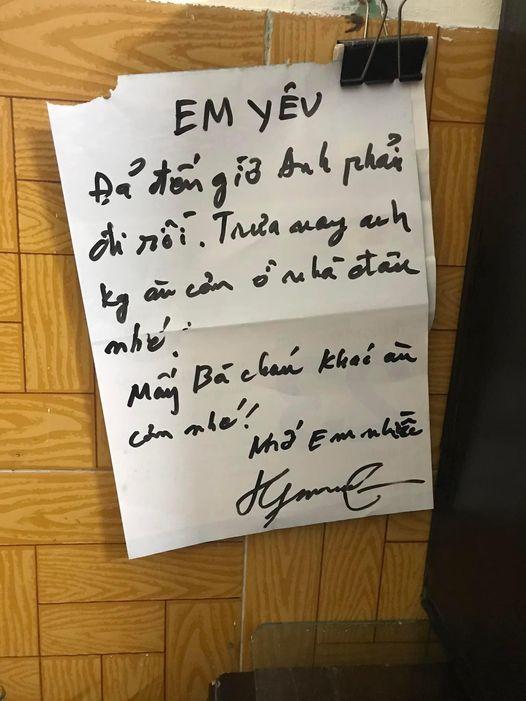 EM YÊU
Đả đến giờ Anh phải
đi rồi. Trưa nay anh
kg ăn cơm ở nhà đâu
nhé.
Mấy Bà cháu khac ăn
cơm nhé!
Nhớ Em nhiều